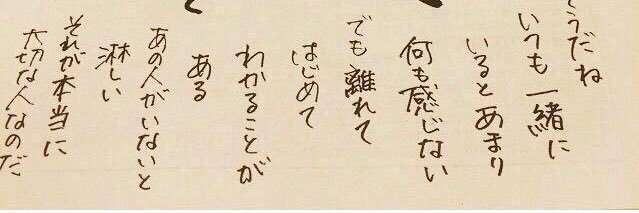 うだね
いつも一緒に
いるとあまり
何も感じない
でも離れて
はじめて
わかることが
ある
あの人がいないと
淋しい
それが本当に
大切な人なのだ